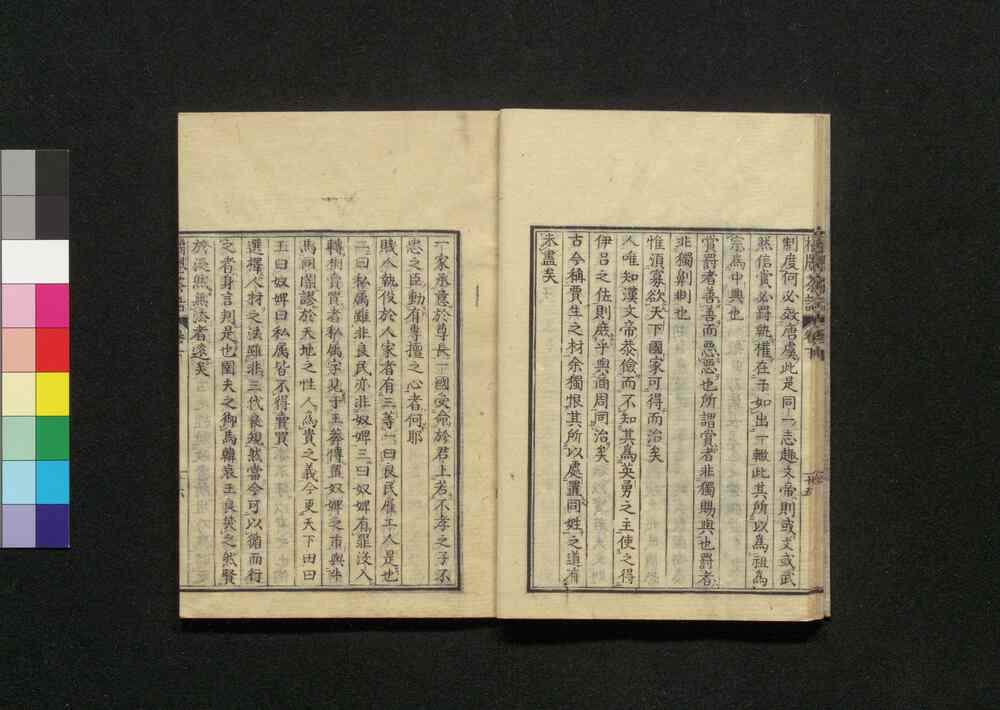 制度何必效唐虞此是同一志趣文帝則或文或武
然信賞必罰執權在予如出一轍此其所以為祖為
宗為中興也
賞爵者善善而惡惡也所謂賞者非獨賜與也爵者
非獨剝刵也
惟須寡欲天下國家可得而治矣
人唯知漢文帝恭儉而不知其為英勇之主使之得
伊呂之佐則庶乎與商周同治矣
古今稱賈生之材余獨恨其所以處置同姓之道有
未盡矣
一家承意於尊長一國受命於君上若不孝之子不
忠之臣動有專擅之心者何耶
賤人執役於人家者有三等一曰良民雇工人是也
二曰私属雖非良民亦非奴婢三曰奴婢有罪没入
轉相賣買者私属字見于王莽傳置奴婢之市與牛
馬同闌謬於天地之性人為貴之義今更天下田曰
王曰奴婢曰私属皆不得賣買
選擇人材之法雖非三代良規然當今可以循而行
之者身言判是也圉夫之御馬韓哀王良焚之然賢
於泛然無法者遠矣